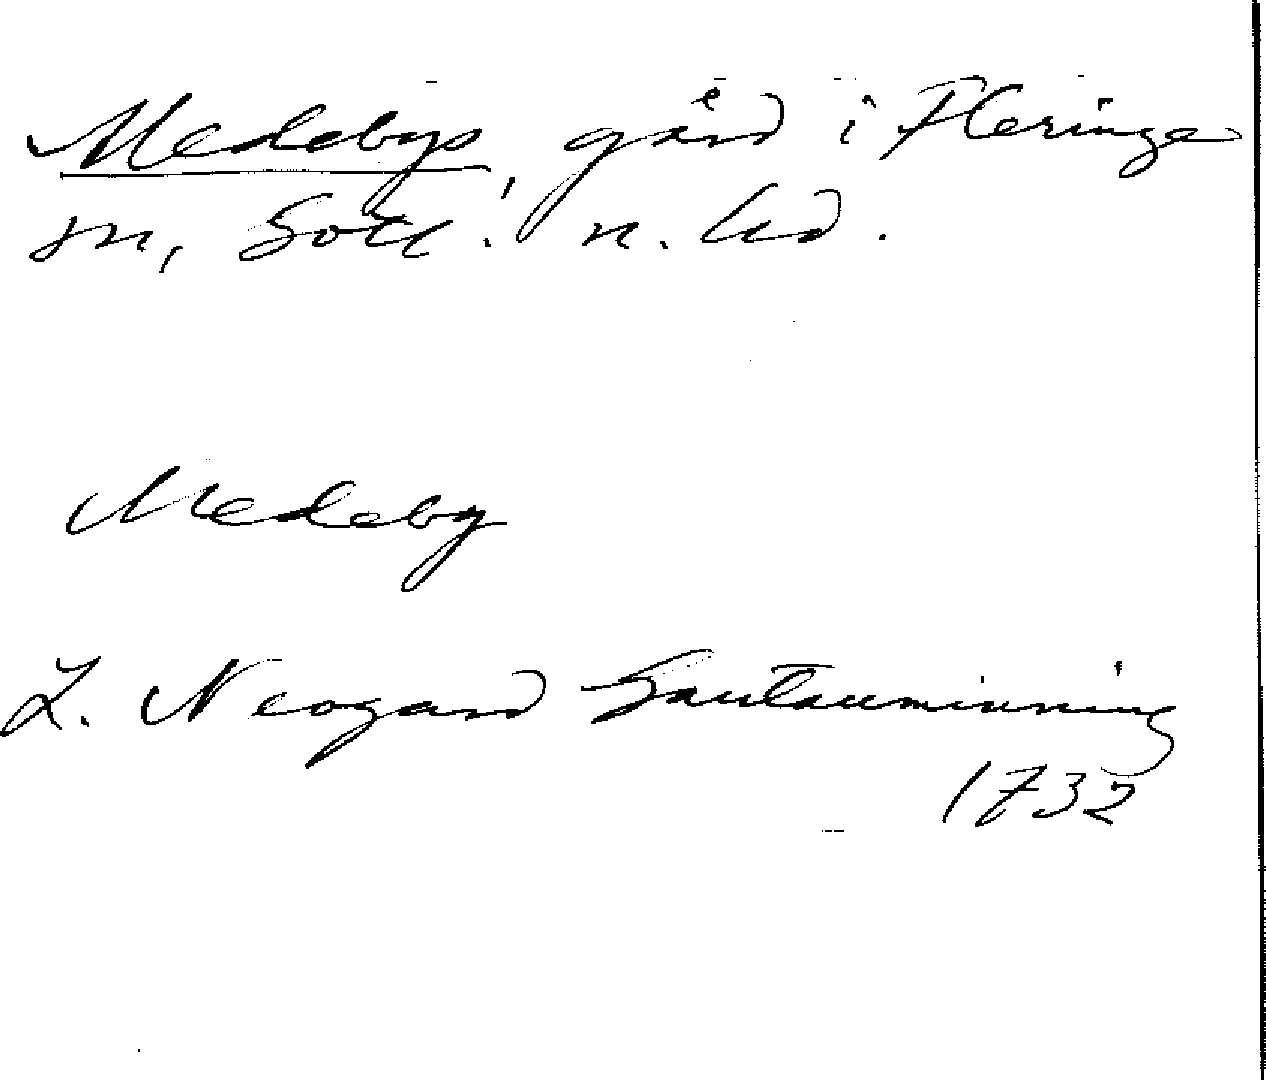 Medebys, gård i Fleringe
sn, Gotl. n. hd.
Medeby
L. Neogard Gautauminning
1732